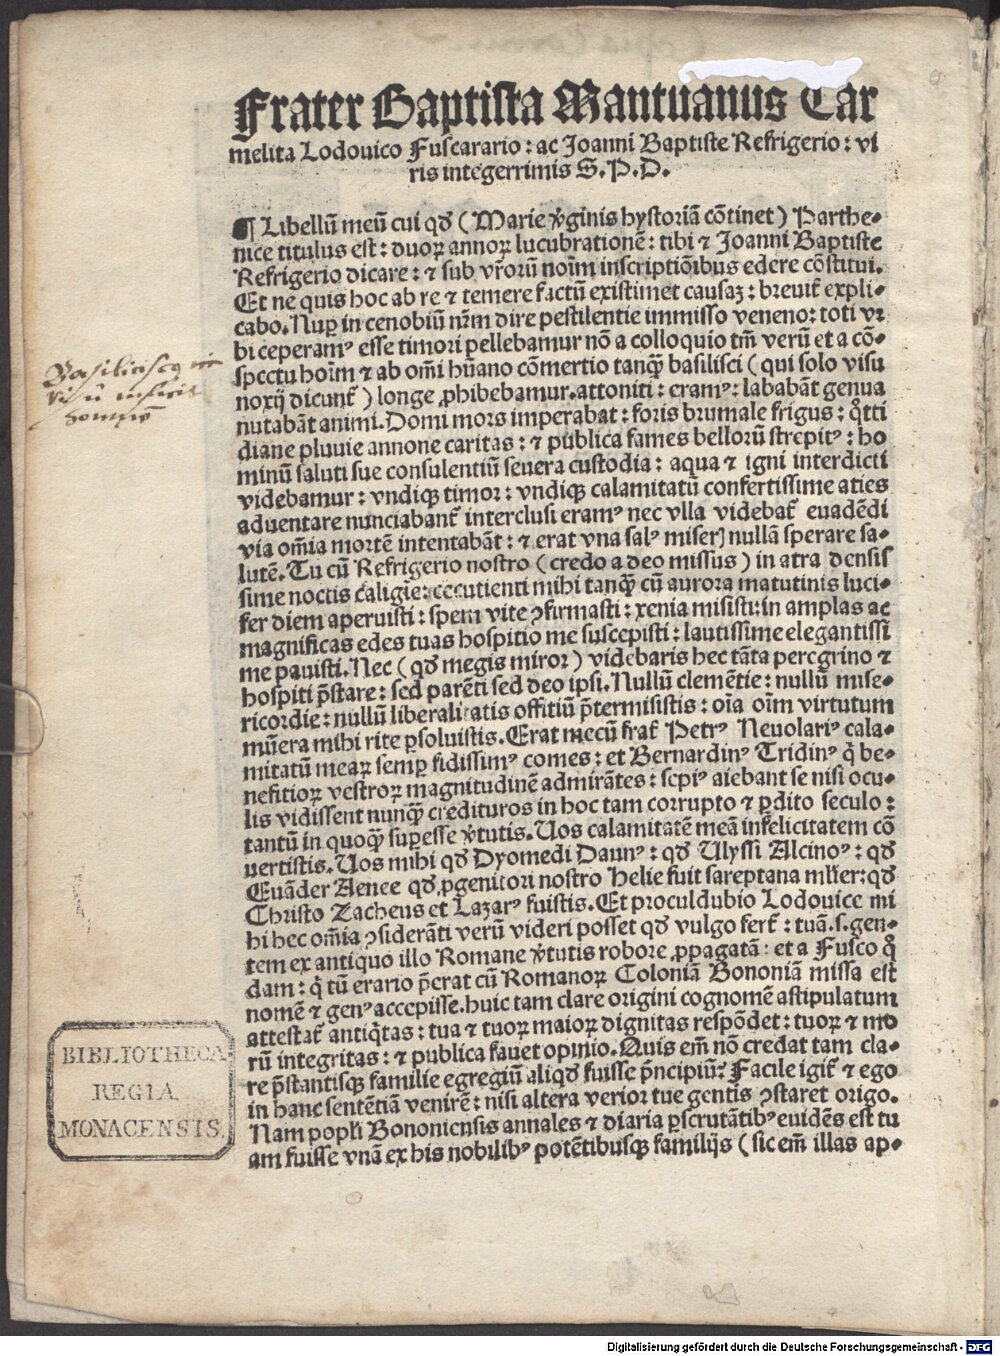 Frater Baptista Mantuanus Car
melita Lodouico Fuscarario: ac Joanni Baptiste Refrigerio: vi
ris integerrimis S.P.D.
¶ Libellū meū cui qđ (Marie ꝟginis hystoriā cōtinet) Parthe-
nice titulus est: duoꝝ annoꝝ lucubrationē: tibi ⁊ Joanni Baptiste
Refrigerio dicare: ⁊ sub vr̄orū noīm inscriptiōibus edere cōstitui.
Et ne quis hoc ab re ⁊ temere factū existimet causaꝫ: breuit̄ expli-
cabo. Nuꝑ in cenobiū nr̄m dire pestilentie immisso veneno: toti vr
bi ceperamꝰ esse timori pellebamur nō a colloquio tm̄ verū et a cō-
spectu hoīm ⁊ ab om̄i hūano cōmertio tanqꝫ basilisci (qui solo visu
noxij dicunt̄) longe ꝓhibebamur. attoniti: eramꝰ: lababāt genua
nutabāt animi. Domi mors imperabat: foris brumale frigus: q̊tti
diane pluuie annone caritas: ⁊ publica fames bellorū strepitꝰ: ho
minū saluti sue consulentiū seuera custodia: aqua ⁊ igni interdicti
videbamur: vndiqꝫ timor: vndiqꝫ calamitatū confertissime aties
aduentare nunciabant̄ interclusi eramꝰ nec vlla videbat̄ euadēdi
via om̄ia mortē intentabāt: ⁊ erat vna salꝰ miseꝝ nullā sperare sa-
lutē. Tu cū Refrigerio nostro (credo a deo missus) in atra densis
sime noctis caligīe: cecutienti mihi tanqꝫ cū aurora matutinis luci-
fer diem aperuisti: spem vite ꝯfirmasti: xenia misisti: in amplas ac
magnificas edes tuas hospitio me suscepisti: lautissime elegantissi
me pauisti. Nec (qđ megis miror) videbaris hec tāta peregrino ⁊
hospiti p̄stare: sed parēti sed deo ipsi. Nullū clemētie: nullū mise-
ricordie: nullū liberalitatis offitiū p̄termisistis: oīa oīm virtutum
mūera mihi rite ꝑsoluistis. Erat mecū frat̄ Petrꝰ Neuolariꝰ cala-
mitatū meaꝝ semꝑ fidissimꝰ comes: et Bernardinꝰ Tridinꝰ q̇ be-
nefitioꝝ vestroꝝ magnitudinē admirātes: sepiꝰ aiebant se nisi ocu-
lis vidissent nunqꝫ credituros in hoc tam corrupto ⁊ ꝑdito seculo:
tantū in quoqꝫ suꝑesse ꝟtutis. Uos calamitatē meā inſelicitatem cō
uertistis. Uos mihi qđ Dyomedi Daunꝰ: qđ Ulyssi Alcinoꝰ: qđ
Euāder Aenee qđ ꝓgenitori nostro Helie fuit sareptana mlꝰier: qđ
Christo Zacheus et Lazarꝰ fuistis. Et proculdubio Lodouice mi
hi hec om̄ia ꝯsiderāti verū videri posset qđ vulgo fert̄: tuā.s.gen-
tem ex antiquo illo Romane ꝟtutis robore ꝓpagatā: et a Fusco q̊
dam: q̇ tū erario p̄erat cū Romanoꝝ Coloniā Bononiā missa est
nomē ⁊ genꝰ accepisse. huic tam clare origini cognomē astipulatum
attestat̄ antiq̇tas: tua ⁊ tuoꝝ maioꝝ dignitas respōdet: tuoꝝ ⁊ mo
rū integritas: ⁊ publica fauet opinio. Quis em̄ nō credat tam cla-
re p̄stantisqꝫ familie egregiū aliqđ fuisse p̄ncipiū? Facile igit̄ ⁊ ego
in hanc sentētiā venirē: nisi altera verior tue gentis ꝯstaret origo.
Nam popl̓i Bononiensis annales ⁊ diaria ꝑscrutātibꝰ euidēs est tu
am fuisse vnā ex his nobilibꝰ potētibusqꝫ familijs (sic em̄ illas ap-
BIBLIOTHECA
REGIA
MONACENSIS.
Digitalisierung gefördert durch die Deutsche Forschungsgemeinschaft - DFG